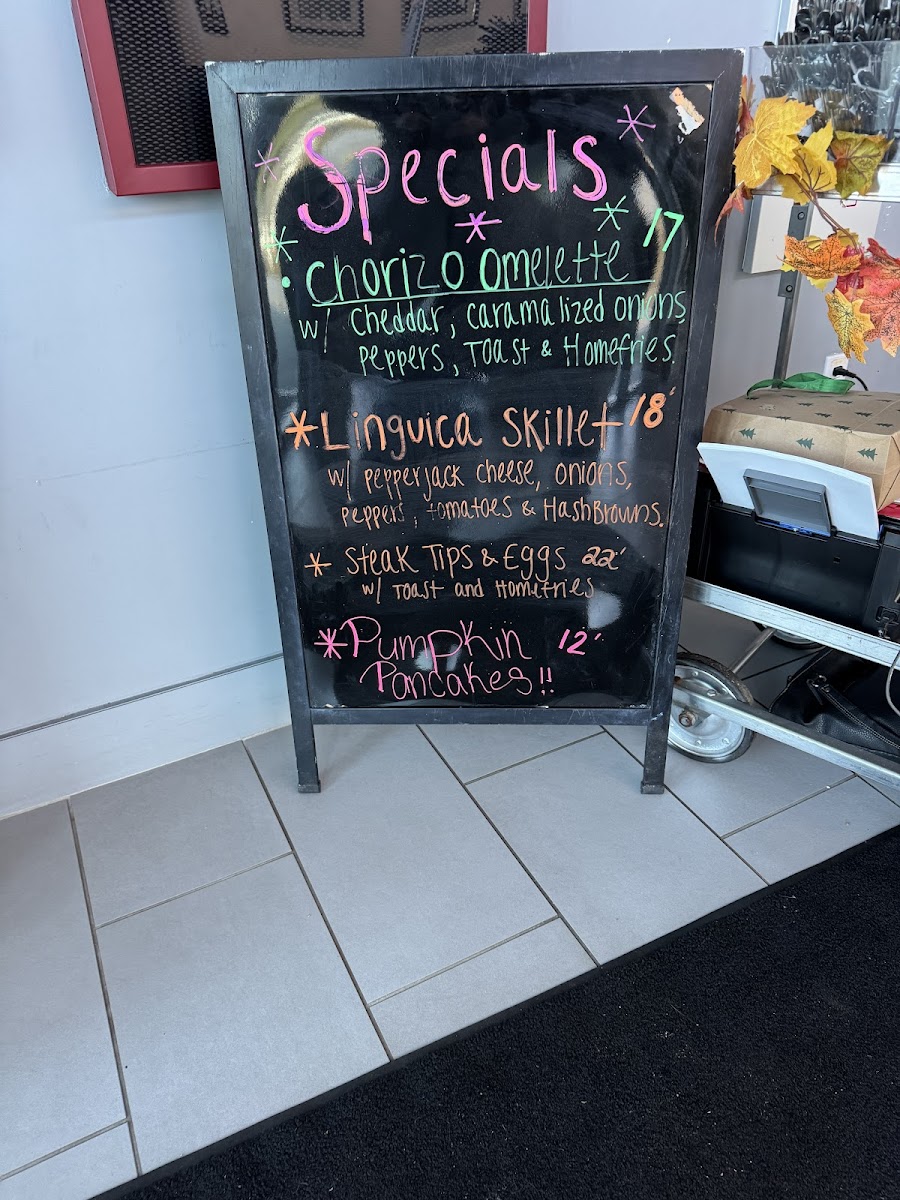 Specials
• Chorizo Omelette 17
w/ Cheddar, Caramalized onions,
Peppers, Toast & Homefries.
* Linguica Skillet 18
w/ pepperjack cheese, onions,
peppers, tomatoes & HashBrowns.
* Steak Tips & Eggs 22
w/ Toast and Homefries
* Pumpkin 12
Pancakes!!